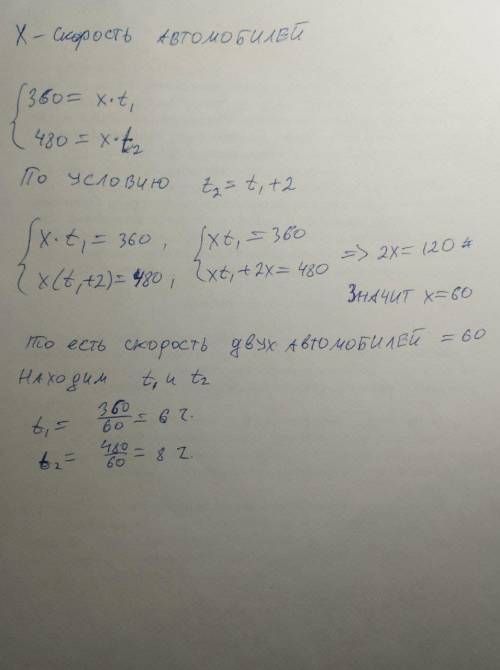 X – скорость автомобилей
360 = x·t₁
480 = x·t₂
По условию t₂ = t₁ + 2
x·t₁ = 360, xt₁ = 360
x(t₁+2) = 480, xt₁ + 2x = 480 => 2x = 120
Значит x = 60
То есть скорость двух автомобилей = 60
Находим t₁ и t₂
t₁ = 360/60 = 6 ч.
t₂ = 480/60 = 8 ч.